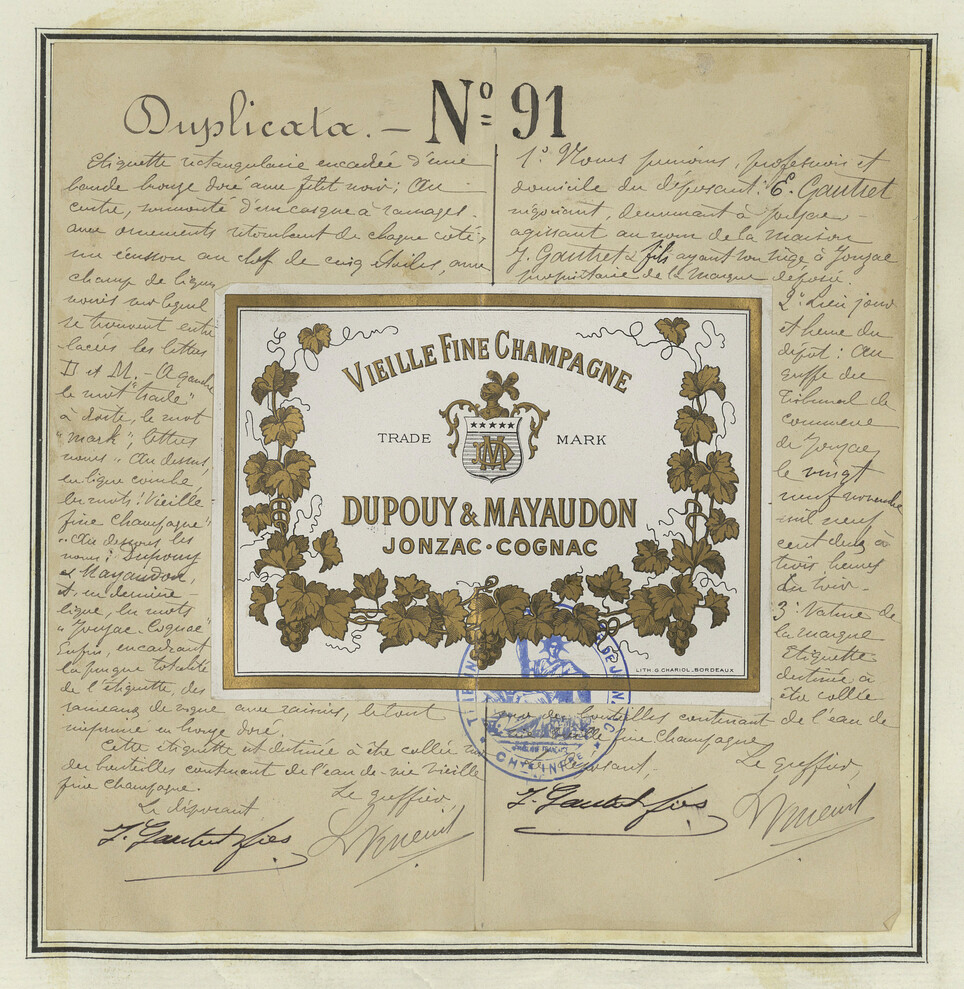 Duplicata. — Nº 91
Etiquette rectangulaire encadrée d'une
bande bronze doré avec filet noir; Au
centre, surmonté d'un casque à ramages
avec ornements retombant de chaque côté,
un écusson au chef de cinq étoiles, avec
champ de lignes
noires sur lequel
se trouvent entre
lacées les lettres
D et M. — A gauche
le mot "trade"
à droite, le mot
"mark", lettres
noires. Au dessus,
en ligne courbe
les mots: Vieille
fine Champagne"
"Au dessous les
noms: Dupouy
et Mayaudon,
et, en dernière
ligne, les mots
"Jonzac-Cognac"
Enfin, encadrant
la presque totalité
de l'étiquette, des
rameaux de vigne avec raisins, le tout
imprimé en bronze doré.
Cette étiquette est destinée à être collée sur
des bouteilles contenant de l'eau-de-vie vieille
fine champagne.
Le déposant, Le greffier,
J. Gautret & fils
1º. Noms prénoms, profession et
domicile du déposant: E. Gautret
négociant, demeurant à Jonzac
agissant au nom de la maison
J. Gautret & fils ayant son siège à Jonzac
propriétaire de la marque déposée.
2º. Lieu jour
et heure du
dépôt: Au
greffe du
Tribunal de
commerce
de Jonzac
le vingt
neuf novembre
mil neuf
cent deux à
trois heures
du soir.
3º. Nature de
la marque
Etiquette
destinée à
être collée
sur des bouteilles contenant de l'eau de
vie vieille fine Champagne
Le déposant, Le greffier,
J. Gautret & fils
VIEILLE FINE CHAMPAGNE
TRADE MARK
DM
DUPOUY & MAYAUDON
JONZAC · COGNAC
LITH. G. CHARIOL, BORDEAUX
DE JONZAC
CH<sup>TE</sup> INFRE